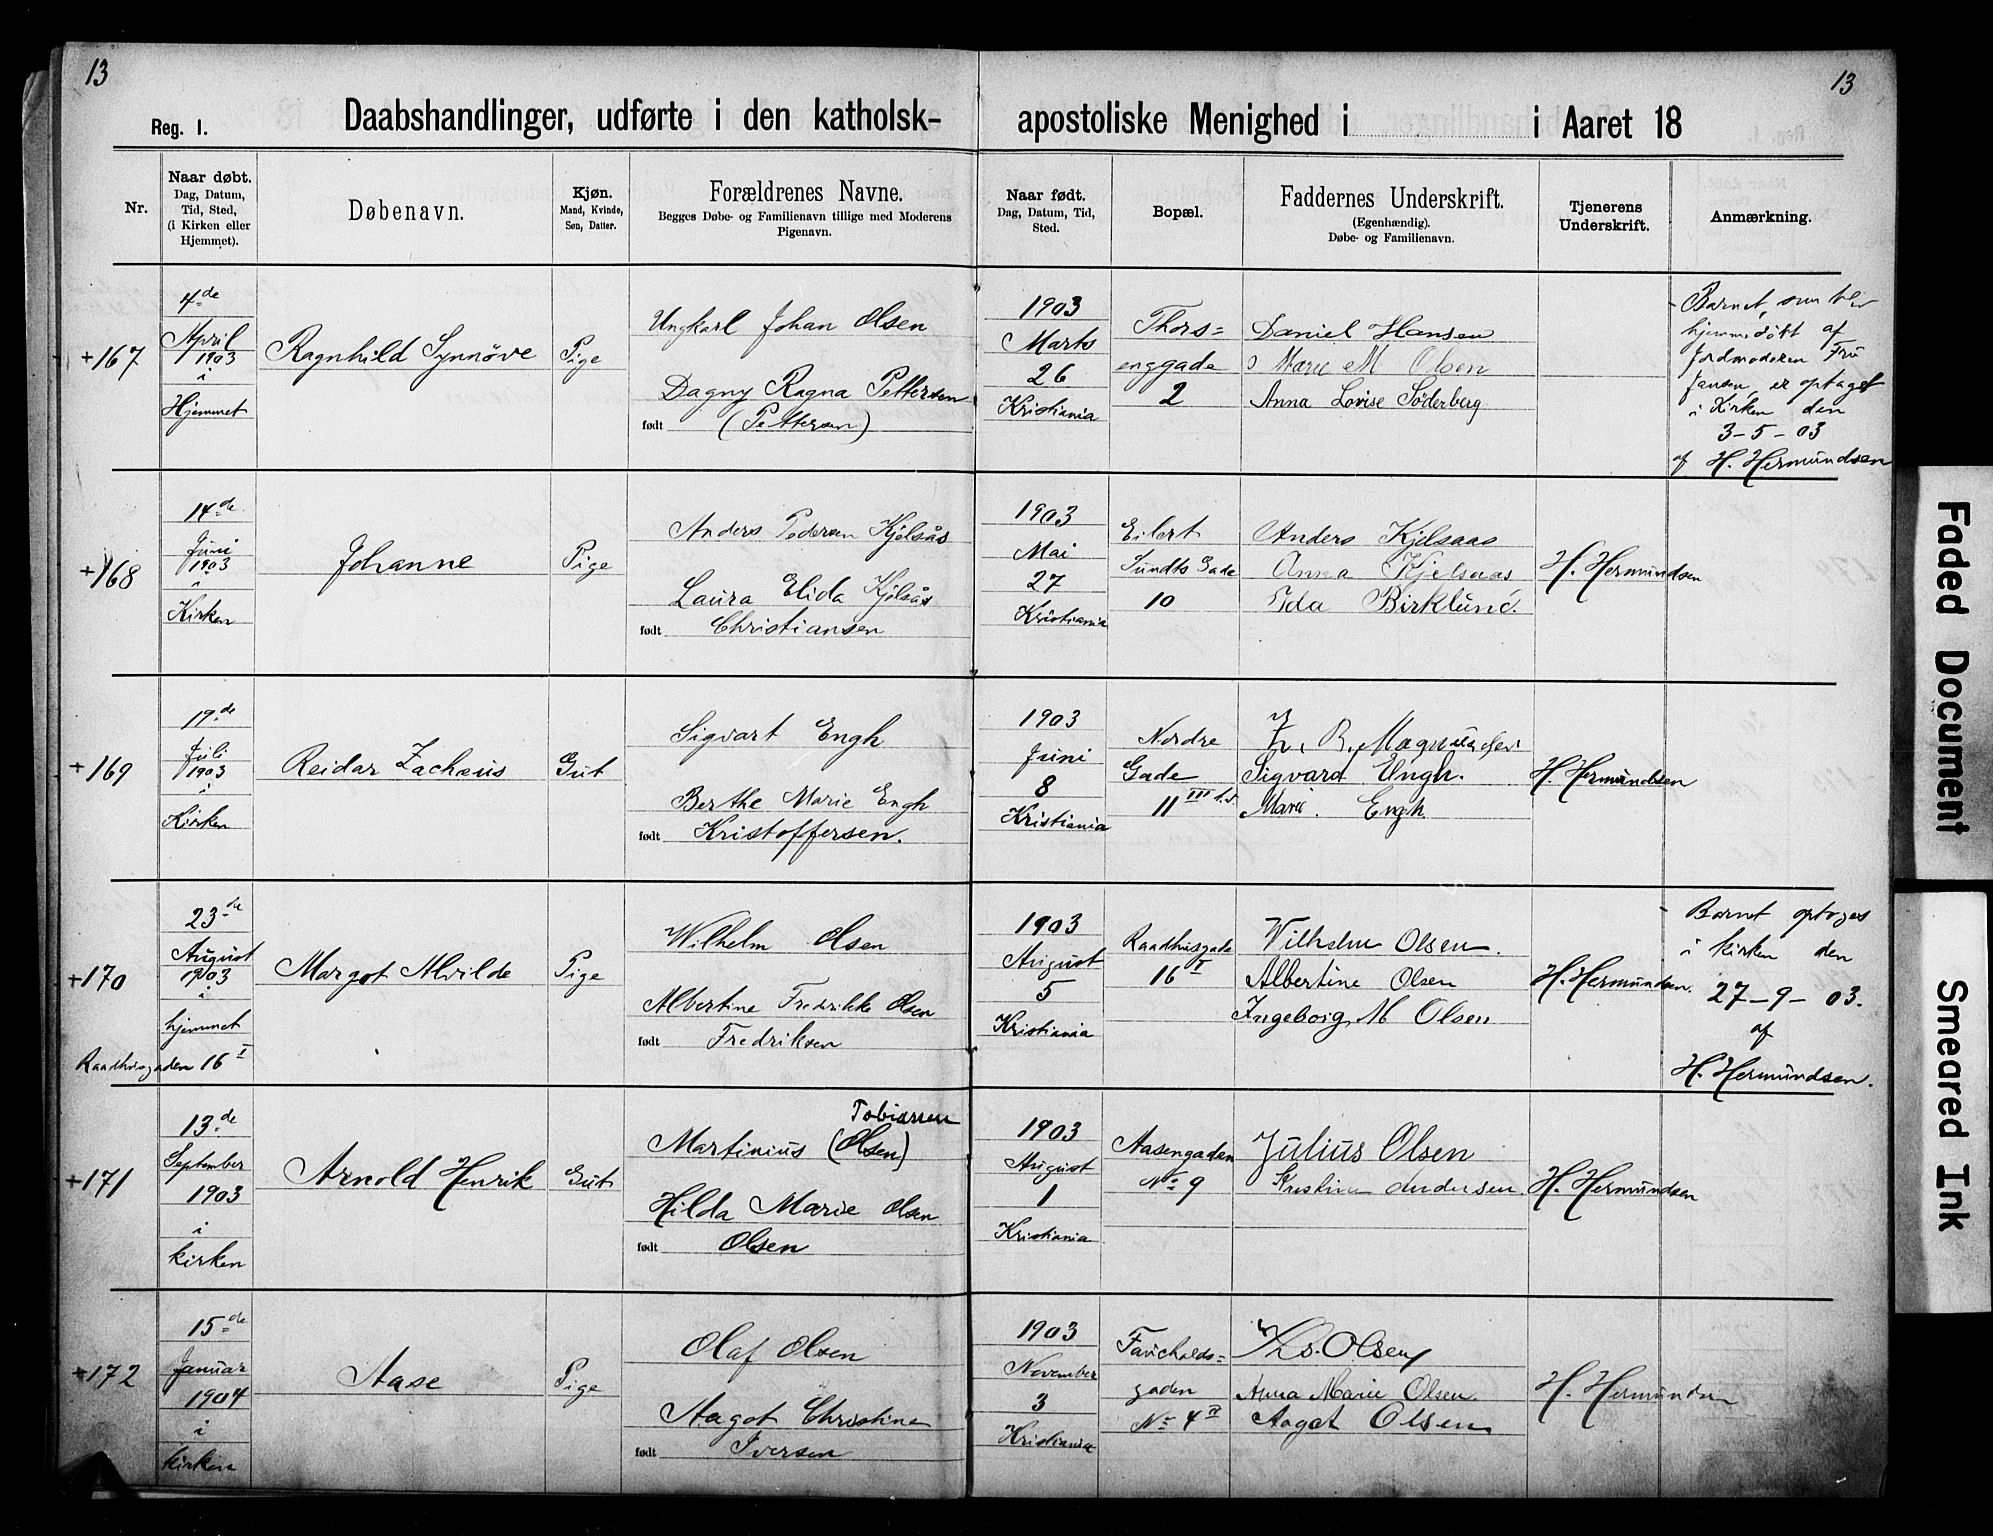 13
13
Reg. I.
Daabshandlinger, udførte i den katholsk-apostoliske Menighed i i Aaret 18
Nr.
Naar døbt.
Dag, Datum,
Tid, Sted,
(i Kirken eller
Hjemmet).
Døbenavn.
Kjøn.
Mand, Kvinde,
Søn, Datter.
Forældrenes Navne.
Begges Døbe- og Familienavn tillige med Moderens
Pigenavn.
Naar født.
Dag, Datum, Tid,
Sted.
Bopæl.
Faddernes Underskrift.
(Egenhændig).
Døbe- og Familienavn.
Tjenerens
Underskrift.
Anmærkning.
+167
4de
April
1903
i
Hjemmet
Ragnhild Synnöve
Pige
Ungkarl Johan Olsen
Dagny Ragna Pettersen
født (Pettersen)
1903
Marts
26
Kristiania
Thors=
enggade
2
Daniel Hansen
Marie M Olsen
Anna Lovise Söderberg
Barnet, som blev
hjemmedöbt af
Jordmoderen Fru
Jansen, er optaget
i Kirken den
3-5-03
af H. Hermundsen
+168
14de
Juni
1903
i
Kirken
Johanne
Pige
Anders Pedersen Kjelsås
Laura Elida Kjelsås
født Christiansen
1903
Mai
27
Kristiania
Eilert
Sundts Gade
10
Anders Kjelsaas
Anna Kjelsaas
Ida Birklund.
H. Hermundsen
+169
19de
Juli
1903
i
Kirken
Reidar Zachæus
Gut
Sigvart Engh
Berthe Marie Engh
født Kristoffersen.
1903
Juni
8
Kristiania
Nordre
Gade
11 III
Z. R. Magnussen
Sigvard Engh.
Marie Engh
H. Hermundsen
+170
23de
August
1903
i
hjemmet
Raadhusgaden 16 I
Margot Alvilde
Pige
Wilhelm Olsen
Albertine Fredrikke Olsen
født Fredriksen
1903
August
5
Kristiania
Raadhusgade
16 I
Vilhelm Olsen.
Albertine Olsen
Ingeborg M Olsen
H. Hermundsen.
Barnet optoges
i kirken den
27-9-03.
af
H. Hermundsen.
+171
13de
September
1903
i
kirken
Arnold Henrik
Gut
Tobiassen
Martinius (Olsen)
Hilda Marie Olsen
født Olsen
1903
August
1
Kristiania
Aasengaden
No 9
Julius Olsen
Kristine Andersen.
H. Hermundsen
+172
15de
Januar
1904
i
kirken
Aase
Pige
Olaf Olsen
Aagot Christine
født Iversen
1903
November
3
Kristiania
gaden
No 4 II
Olsen
Anna Marie Olsen
Aagot Olsen
H. Hermundsen
Faded Document
Smeared Ink